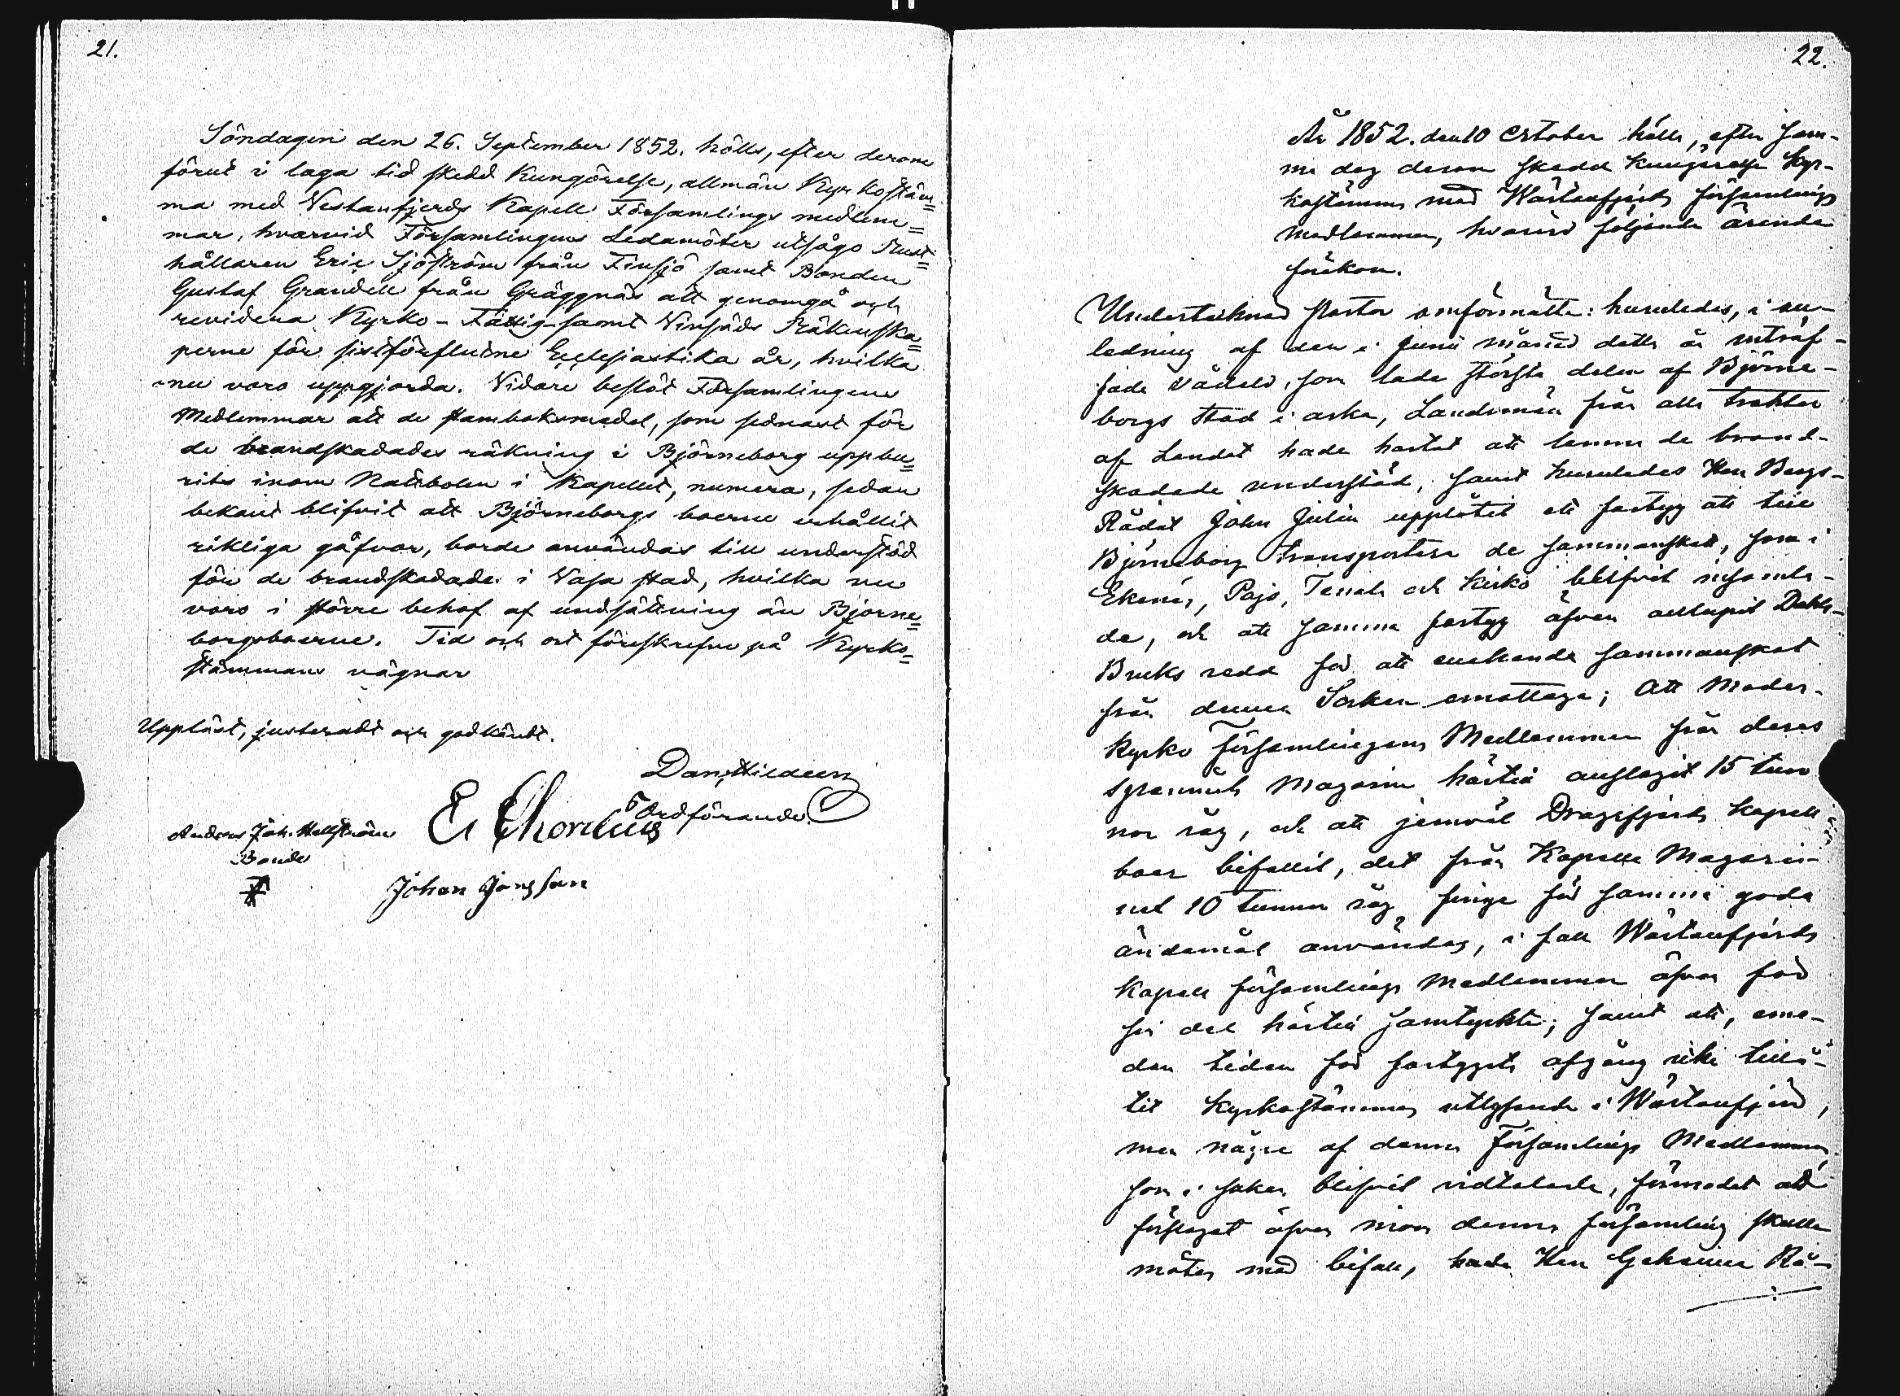 21.
Söndagen den 26. September 1852. hölls, efter derom
förut i laga tid skedd Kungörelse, allmän Kyrkostäm=
ma med Vestanfjerds Kapell Församlings medlem=
mar, hvarvid Församlingens Ledamöter utsågo Rust=
hållaren Eric Sjöström från Finsjö samt Bonden
Gustaf Grandell från Gräggnäs att genomgå och
revidera Kyrko-Fattig-samt Vinsäds Räkenska=
perne för sistförflutne Ecclesiastika år, hvilka
nu voro uppgjorda. Vidare beslöt Församlingens
Medlemmar att de stamboksmedel, som sednast för
de brandskadades räkning i Björneborg uppbu=
rits inom Nattbolen i Kapellet, numera, sedan
bekant blifvit att Björneborgs boerne erhållit
rikliga gåfvor, borde användas till understöd
för de brandskadade i Vasa stad, hvilka nu
voro i större behof af undsättning än Björne=
borgsboerne. Tid och ort föreskrefne på Kyrko=
stämmans vägnar
Uppläst, justeradt och godkändt.
Dan. Hildeen
Ordförande.
Anders Joh. Hellström
Bonde
Johan Jansson
22.
År 1852. den 10 October hölls, efter sam-
ma dag derom skedd kungörelse kyr-
kostämma med Wästanfjerds församlings
medlemmar, hvarvid följande ärende
förekom.
Undertecknad Pastor omförmälte: huruledes, i an-
ledning af den i Junii månad detta år inträf-
fade vådeld, som lade största delen af Björne-
borgs stad i aska, Landsmän från alla trakter
af Landet hade hastat att lemna de brand-
skadade understöd, samt huruledes Herr Bergs-
Rådet John Julin upplåtit ett fartyg att till
Björneborg transportera de sammanskott, som i
Ekenäs, Pojo, Tenala och Kisko blifvit insamla-
de, och att samma fartyg äfven anlupit Dahls-
Bruks redd för att enahanda sammanskott
från denna Socken emottaga; att Moder-
kyrko församlingens Medlemmar från deras
Spannmåls Magasin härtill anslagit 15 tun
nor råg, och att jemväl Dragsfjerds Kapell
boer bifallit, det från Kapells Magasi-
net 10 tunnor råg finge för samma goda
ändamål användas, i fall Wästanfjerds
Kapell församlings Medlemmar äfven för
sin del härtill samtyckte; samt att, eme-
dan tiden för fartygets afgång icke tillå-
tit Kyrkostämmas utlysande i Wästanfjerd,
men några af denna Församlings Medlemmar
som i saken blifvit vidtalade, förmodat att
förslaget äfven inom denna församling skulle
mötas med bifall, hade Herr Geheime Rå-